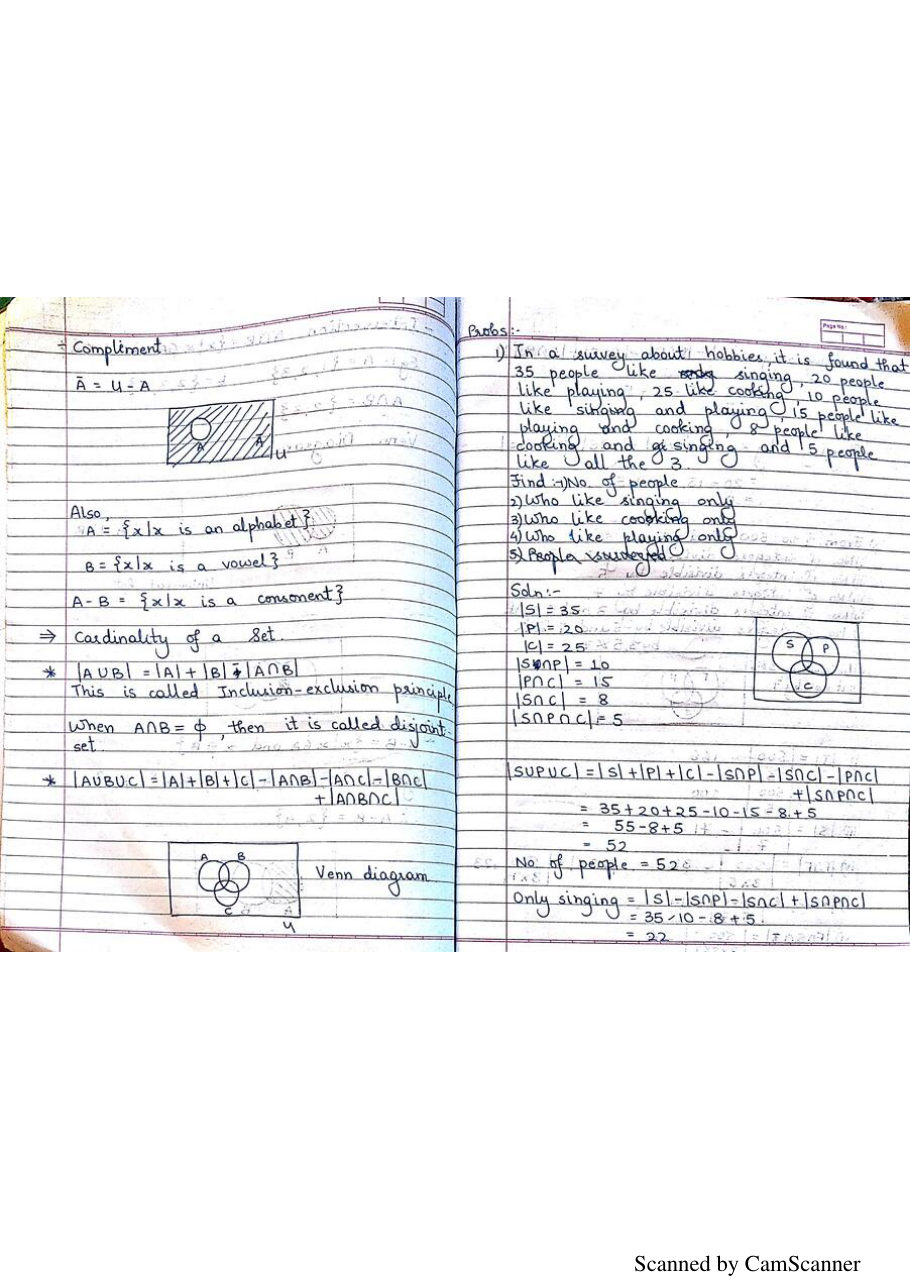 ÷ Compliment
Ā = U - A
A
Ā
U
Also,
A = {x|x is an alphabet}
B = {x|x is a vowel}
A - B = {x|x is a consonent}
⇒ Cardinality of a Set.
* |A∪B| = |A| + |B| - |A∩B|
This is called Inclusion-exclusion principle
When A∩B = ϕ, then it is called disjoint
set.
* |A∪B∪C| = |A|+|B|+|C|-|A∩B|-|A∩C|-|B∩C|
+|A∩B∩C|
A B
C
U
Venn diagram
Page No:
Probs:-
1) In a survey about hobbies it is found that
35 people like singing, 20 people
like playing, 25 like cooking, 10 people
like singing and playing, 15 people like
playing and cooking, 8 people like
cooking and singing and 5 people
like all the 3.
Find :-1) No. of people
2) Who like singing only
3) Who like cooking only
4) Who like playing only
5) People surveyed
Soln:-
|S| = 35
|P| = 20
|C| = 25
|S∩P| = 10
|P∩C| = 15
|S∩C| = 8
|S∩P∩C| = 5
S P
C
|S∪P∪C| = |S|+|P|+|C|-|S∩P|-|S∩C|-|P∩C|
+|S∩P∩C|
= 35+20+25-10-15-8+5
= 55-8+5
= 52
No. of people = 52
Only singing = |S|-|S∩P|-|S∩C|+|S∩P∩C|
= 35-10-8+5
= 22
Scanned by CamScanner